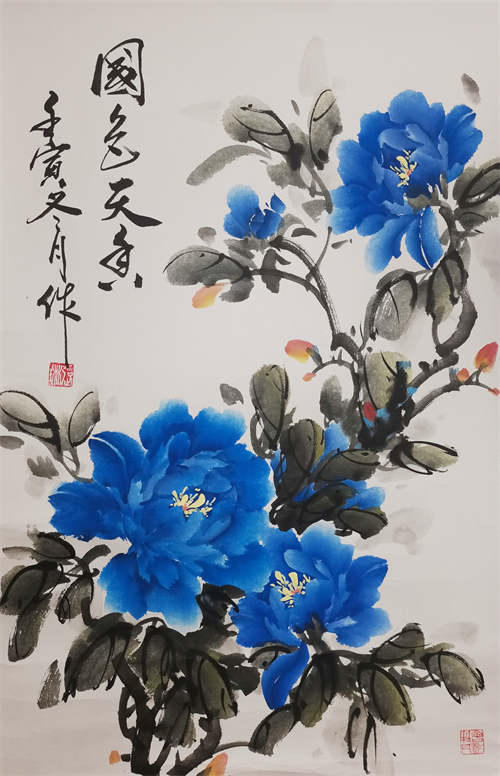 國色天香
壬寅冬月作